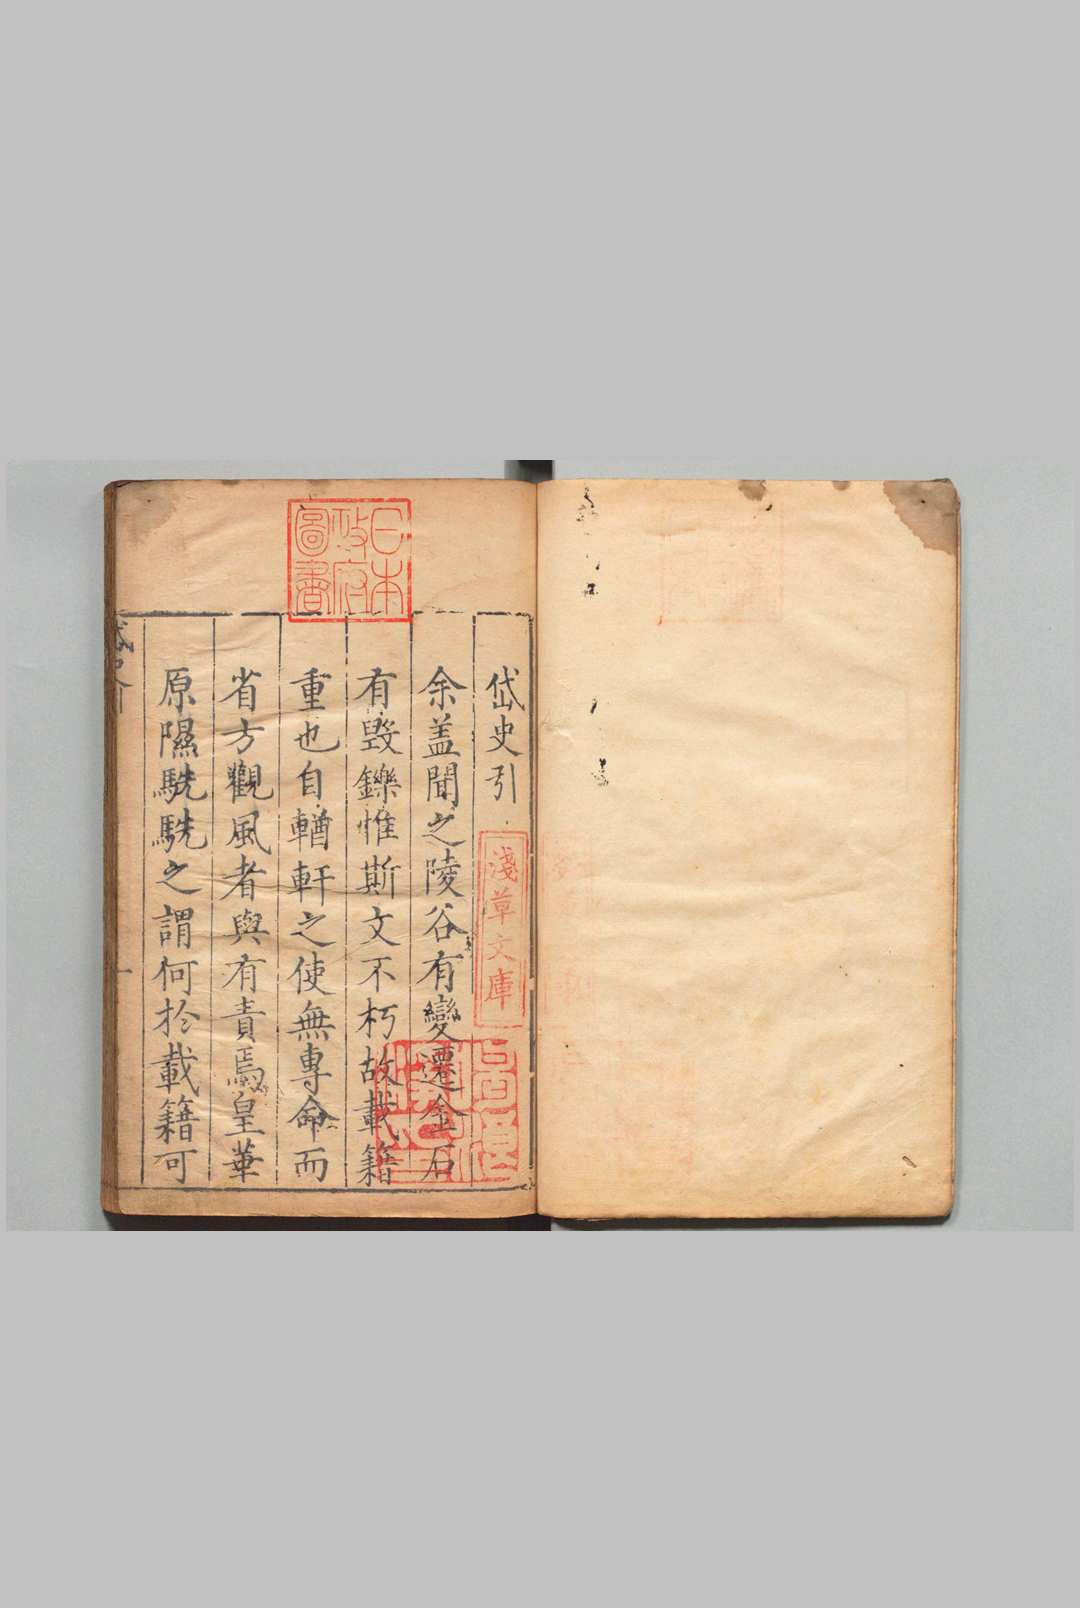 岱史引
余盖聞之陵谷有變遷金石
有毀鑠惟斯文不朽故載籍
重也自輶軒之使無專命而
省方觀風者與有責焉皇華
原隰駪駪之謂何扵載籍可
日本
政府
圖書
淺草文庫